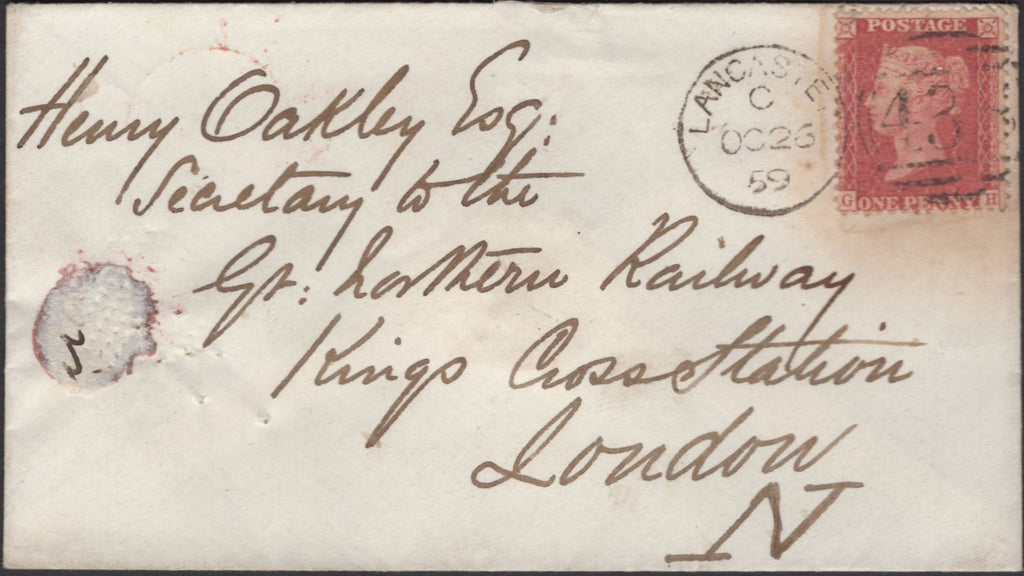 POSTAGE
LANCASTE
C
OC 26
59
43
G ONE PENNY H
Henry Oakley Esq:
Secretary to the
Gt: Northern Railway
Kings Cross Station
London
N